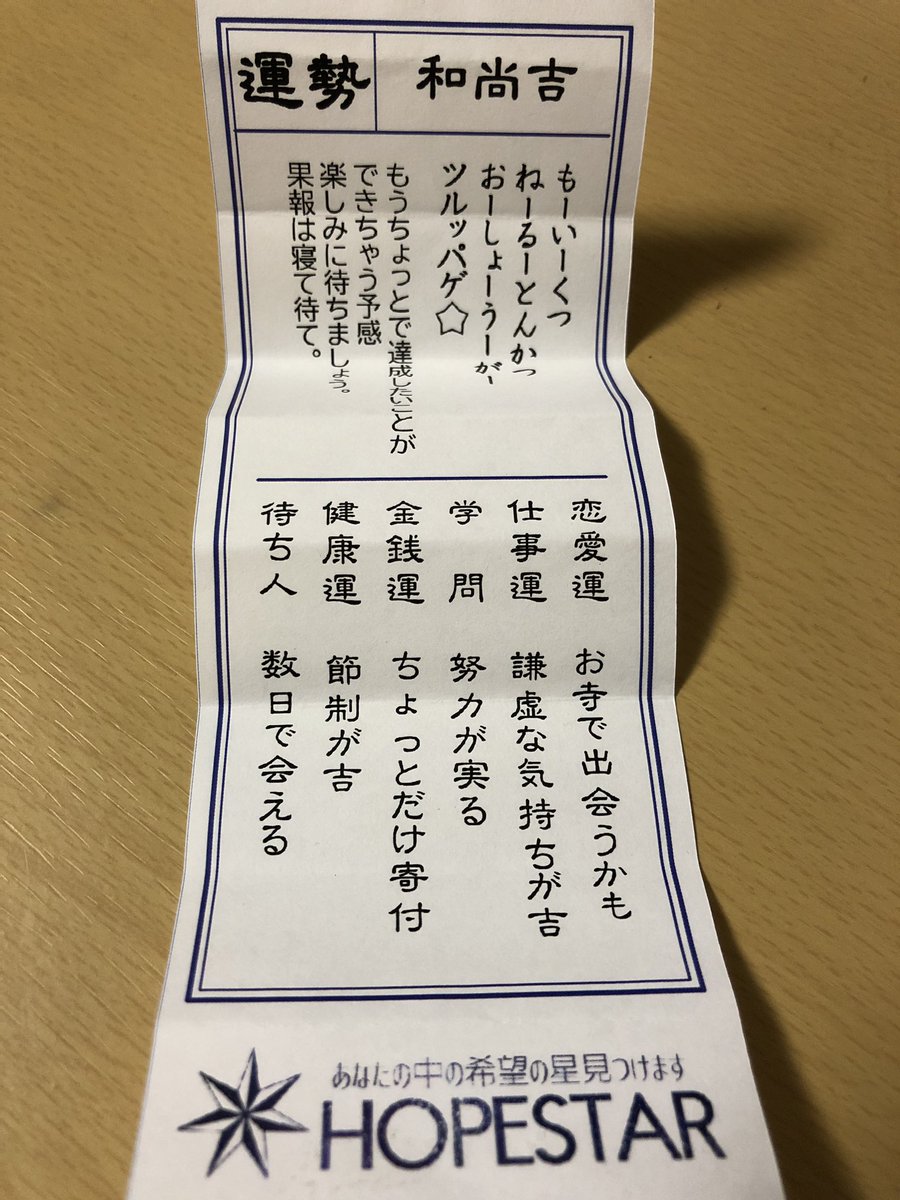 運勢
和尚吉
もーいーくつ
ねーるーとんかっ
おーしょーうーが、
ツルッパゲ☆
もうちょっとで達成したいことが
できちゃう予感
楽しみに待ちましょう。
果報は寝て待て。
恋愛運 お寺で出会うかも
仕事運 謙虚な気持ちが吉
学問 努力が実る
金銭運 ちょっとだけ寄付
健康運 節制が吉
待ち人 数日で会える
あなたの中の希望の星見つけます
HOPESTAR